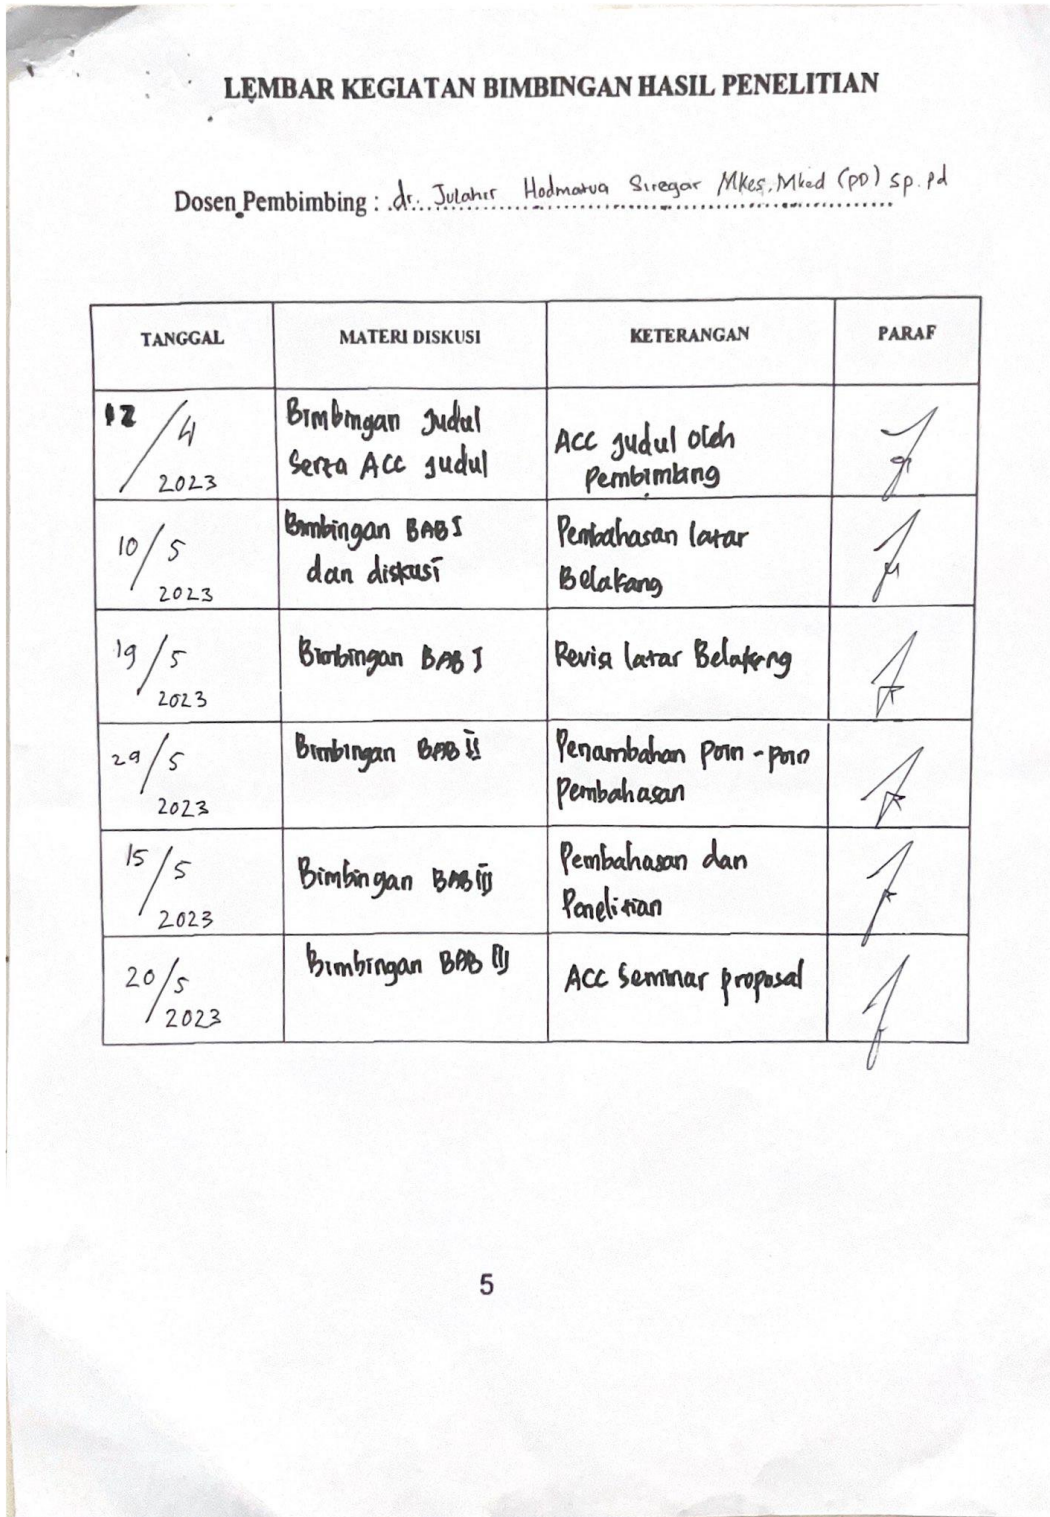 LEMBAR KEGIATAN BIMBINGAN HASIL PENELITIAN
Dosen Pembimbing : dr. Julahir Hodmatua Siregar Mkes, Mked (PD) Sp. Pd
TANGGAL MATERI DISKUSI KETERANGAN PARAF
12/4 2023
Bimbingan Judul
Serta Acc judul
Acc judul oleh
Pembimbing
10/5 2023
Bimbingan BAB I
dan diskusi
Pembahasan latar
Belakang
19/5 2023
Bimbingan BAB I
Revisi latar Belakang
29/5 2023
Bimbingan BAB II
Penambahan Poin - poin
Pembahasan
15/5 2023
Bimbingan BAB III
Pembahasan dan
Penelitian
20/5 2023
Bimbingan BAB III
Acc Seminar proposal
5